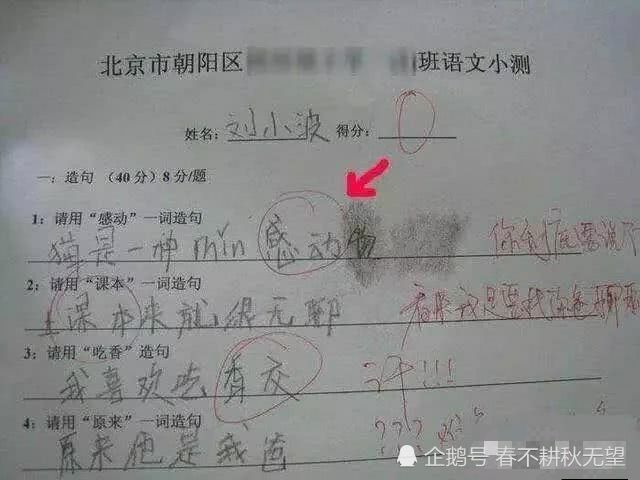 北京市朝阳区 班语文小测
姓名：刘小波 得分：0
一：造句（40分）8分/题
1：请用“感动”一词造句
猫是一种mǐn感动物
你到底要说
2：请用“课本”一词造句
上课本来就很无聊
看来我是要找你爸聊聊
3：请用“吃香”造句
我喜欢吃香交
汗!!!
4：请用“原来”一词造句
原来他是我爸
???
企鹅号 春不耕秋无望